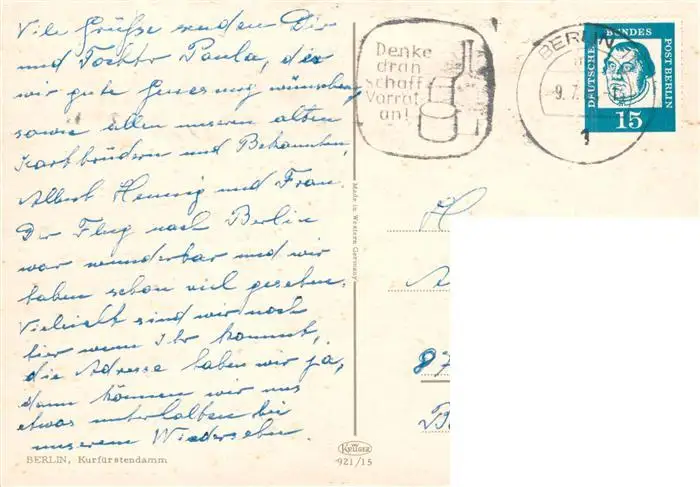 Viele Grüße senden Dir
und Tochter Paula, der
wir gute Genesung wünschen,
sowie allen unseren alten
und Bekannten,
Albert Hennig und Frau.
Der Flug nach Berlin
war wunderbar und wir
haben schon viel gesehen.
Vielleicht sind wir noch
hier wenn Ihr kommt,
die Adresse haben wir ja,
dann können wir uns
etwas unterhalten bei
unserem Wiedersehn.
BERLIN, Kurfürstendamm
Denke
dran
schaff
Vorrat
an!
BERLIN
9.7.
1
DEUTSCHE BUNDESPOST BERLIN
15
Made in Western Germany
H
87
B
KRÜGER
921/15